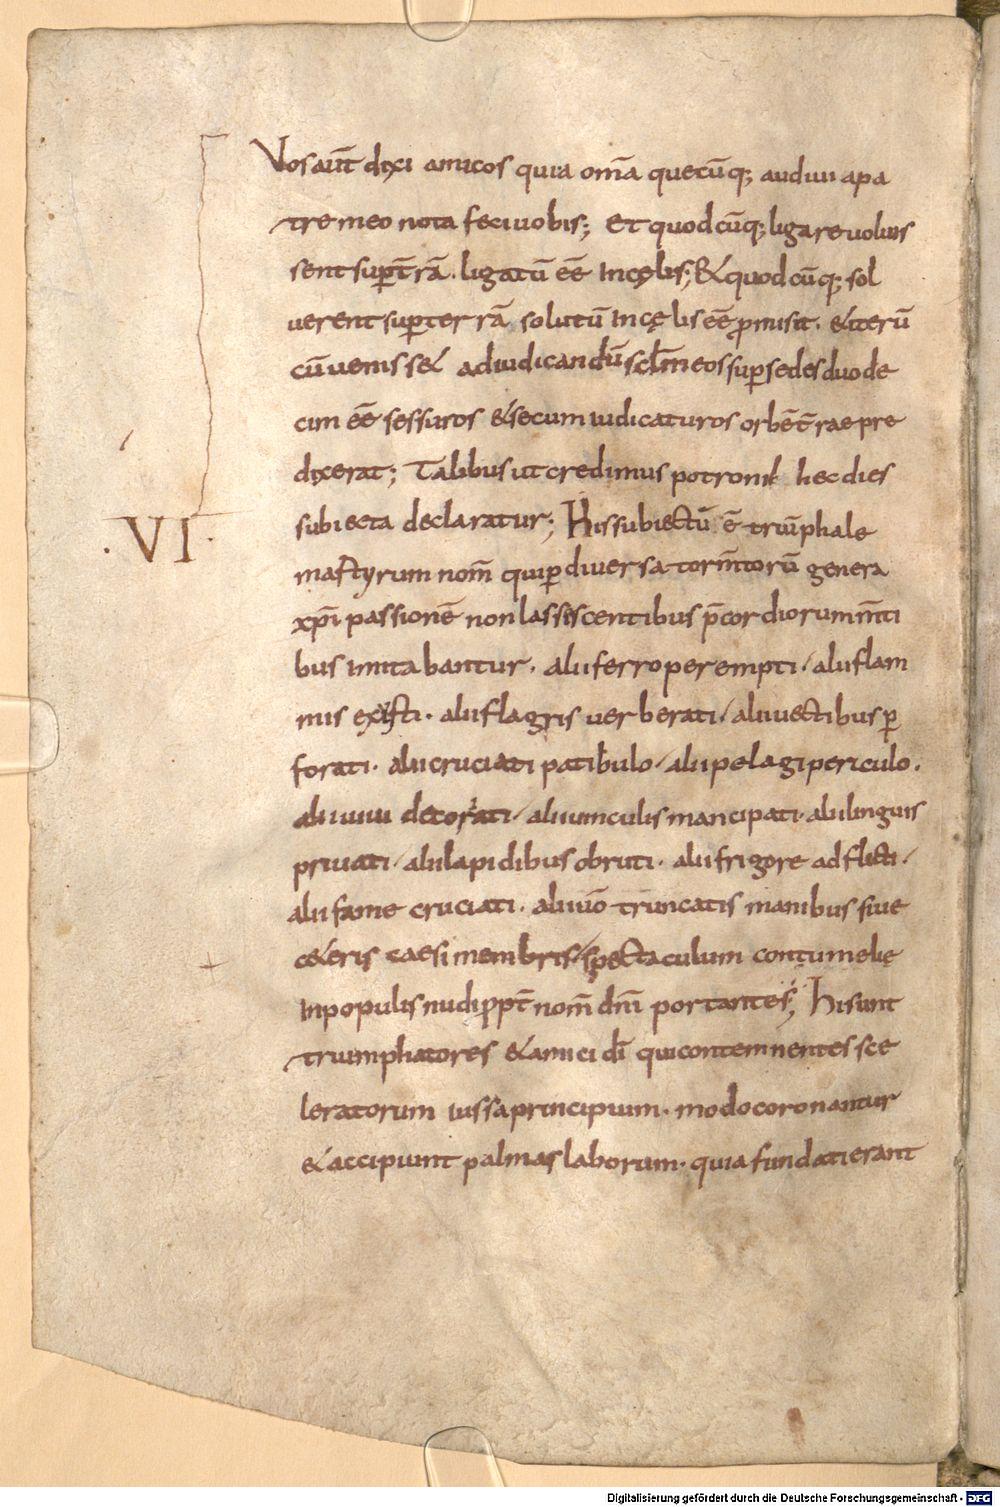 Vos aut̄ dixi amicos quia om̄a quecūq; audiui apa
tre meo nota feci uobis; Et quodcūq; ligare voluis
sent sup t̄rā. ligatū eē In cęlis; & quodcūq; sol
verent sup terrā solutū In cęlis eē p̱misit. & iterū
cū uenisset ad iudicandū sclm̄ eos sup sedes duode
cim eē sessuros & secum iudicaturos orbē t̄rae pre
dixerat; Talibus ut credimus potronis hec dies
subiecta declaratur; His subiectū ē triūphale
.VI.
martyrum nom̄ qui p diuersa torm̄torū genera
xp̄i passionē non lassiscentibus p̄cordiorum m̄ti
bus imitabantur. alii ferro perempti. alii flam
mis exusti. alii flagris verberati. alii uectibus p
forati. alii cruciati patibulo. alii pelagi periculo.
alii uiui decorati. alii uinculis mancipati. alii linguis
priuati. alii lapidibus obruti. alii frigore adflicti.
alii fame cruciati. alii uō truncatis manibus siue
c&eris caesi membris. spectaculum contumelię
In populis nudi ppt̄ nom̄ dn̄i portantes; Hi sunt
triumphatores & amici dī qui contemnentes sce
leratorum iussa principium. modo coronantur
& accipiunt palmas laborum. quia fundati erant
Digitalisierung gefördert durch die Deutsche Forschungsgemeinschaft - DFG